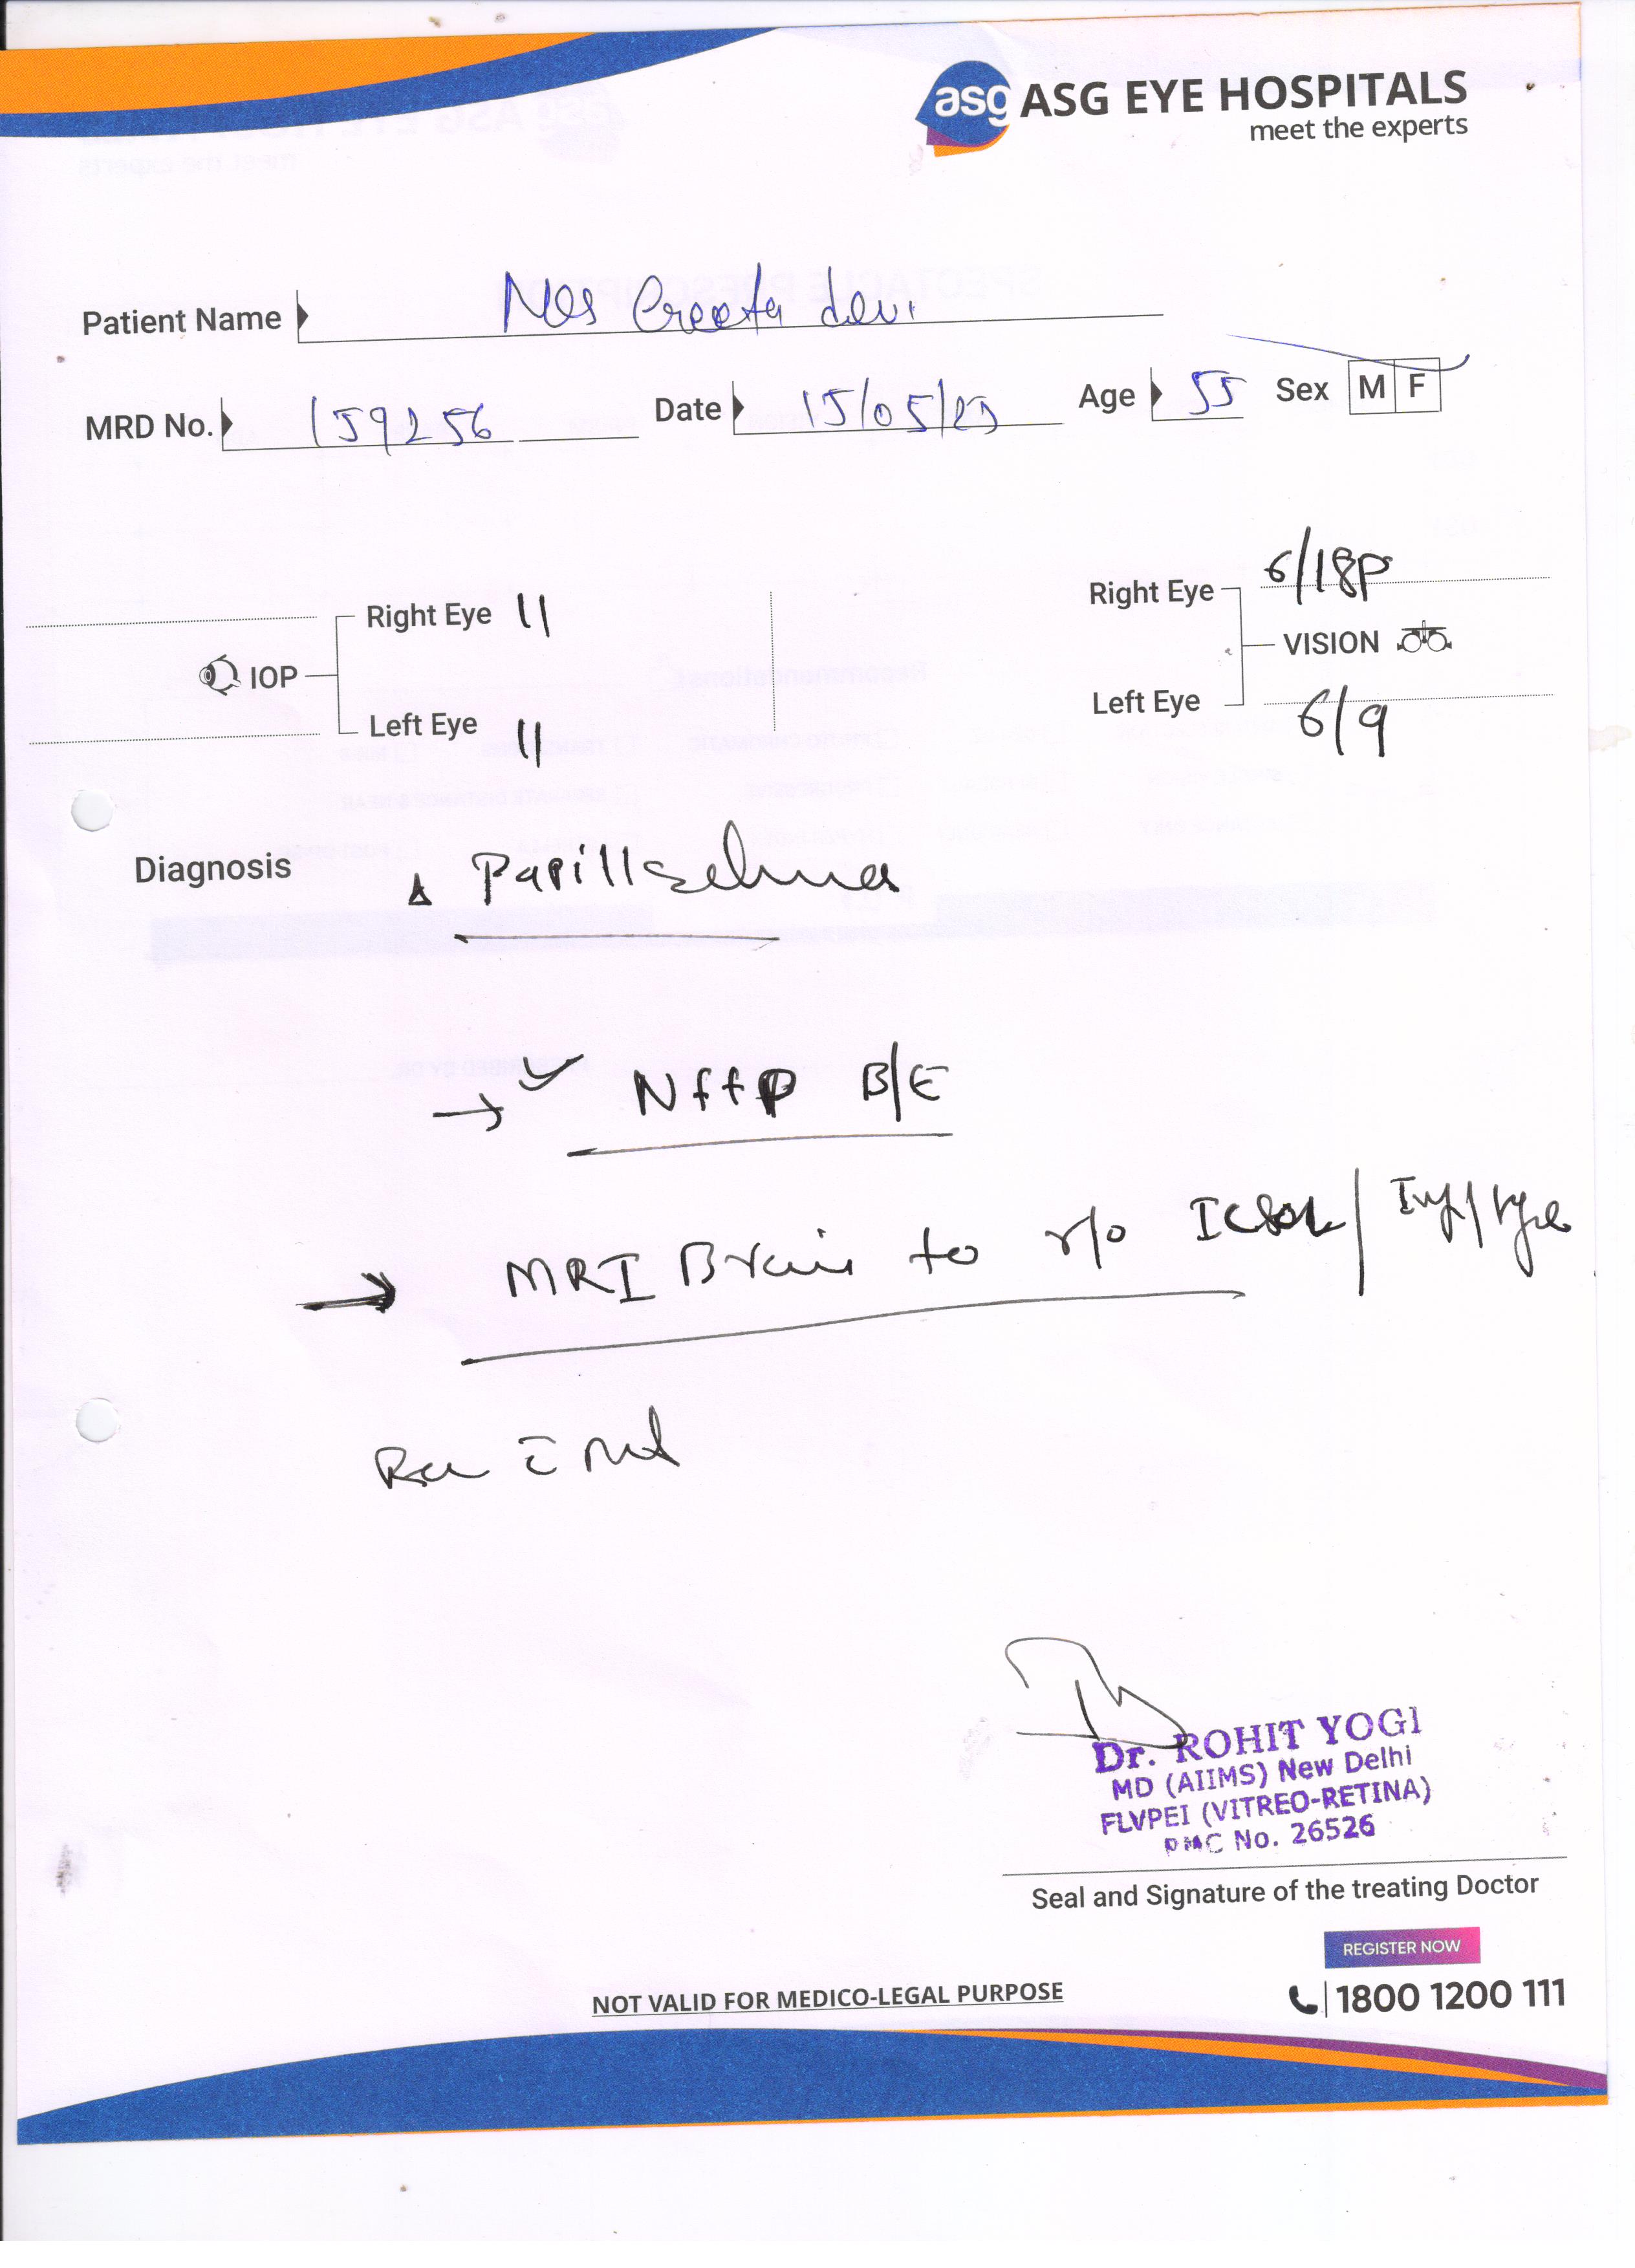 asg ASG EYE HOSPITALS
meet the experts
Patient Name Mrs Geeta devi
MRD No. 159256 Date 15/05/25 Age 55 Sex M F
Right Eye 6/18p
Right Eye 11
VISION
IOP
Left Eye 6/9
Left Eye 11
Diagnosis Δ Papilloedema
→ B/E
→ MRI Brain to r/o ICSOL /
Dr. ROHIT YOGI
MD (AIIMS) New Delhi
FLVPEI (VITREO-RETINA)
RMC No. 26526
Seal and Signature of the treating Doctor
REGISTER NOW
NOT VALID FOR MEDICO-LEGAL PURPOSE
1800 1200 111